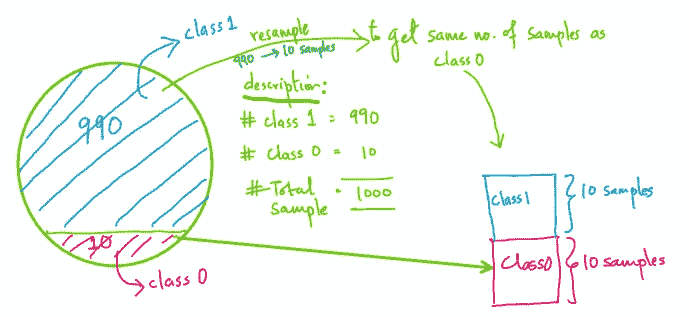 class 1
resample
990 → 10 samples
to get same no. of samples as
class 0
description:
# class 1 = 990
# class 0 = 10
# Total Sample = 1000
990
10
class 0
class 1
10 samples
Class 0
10 samples